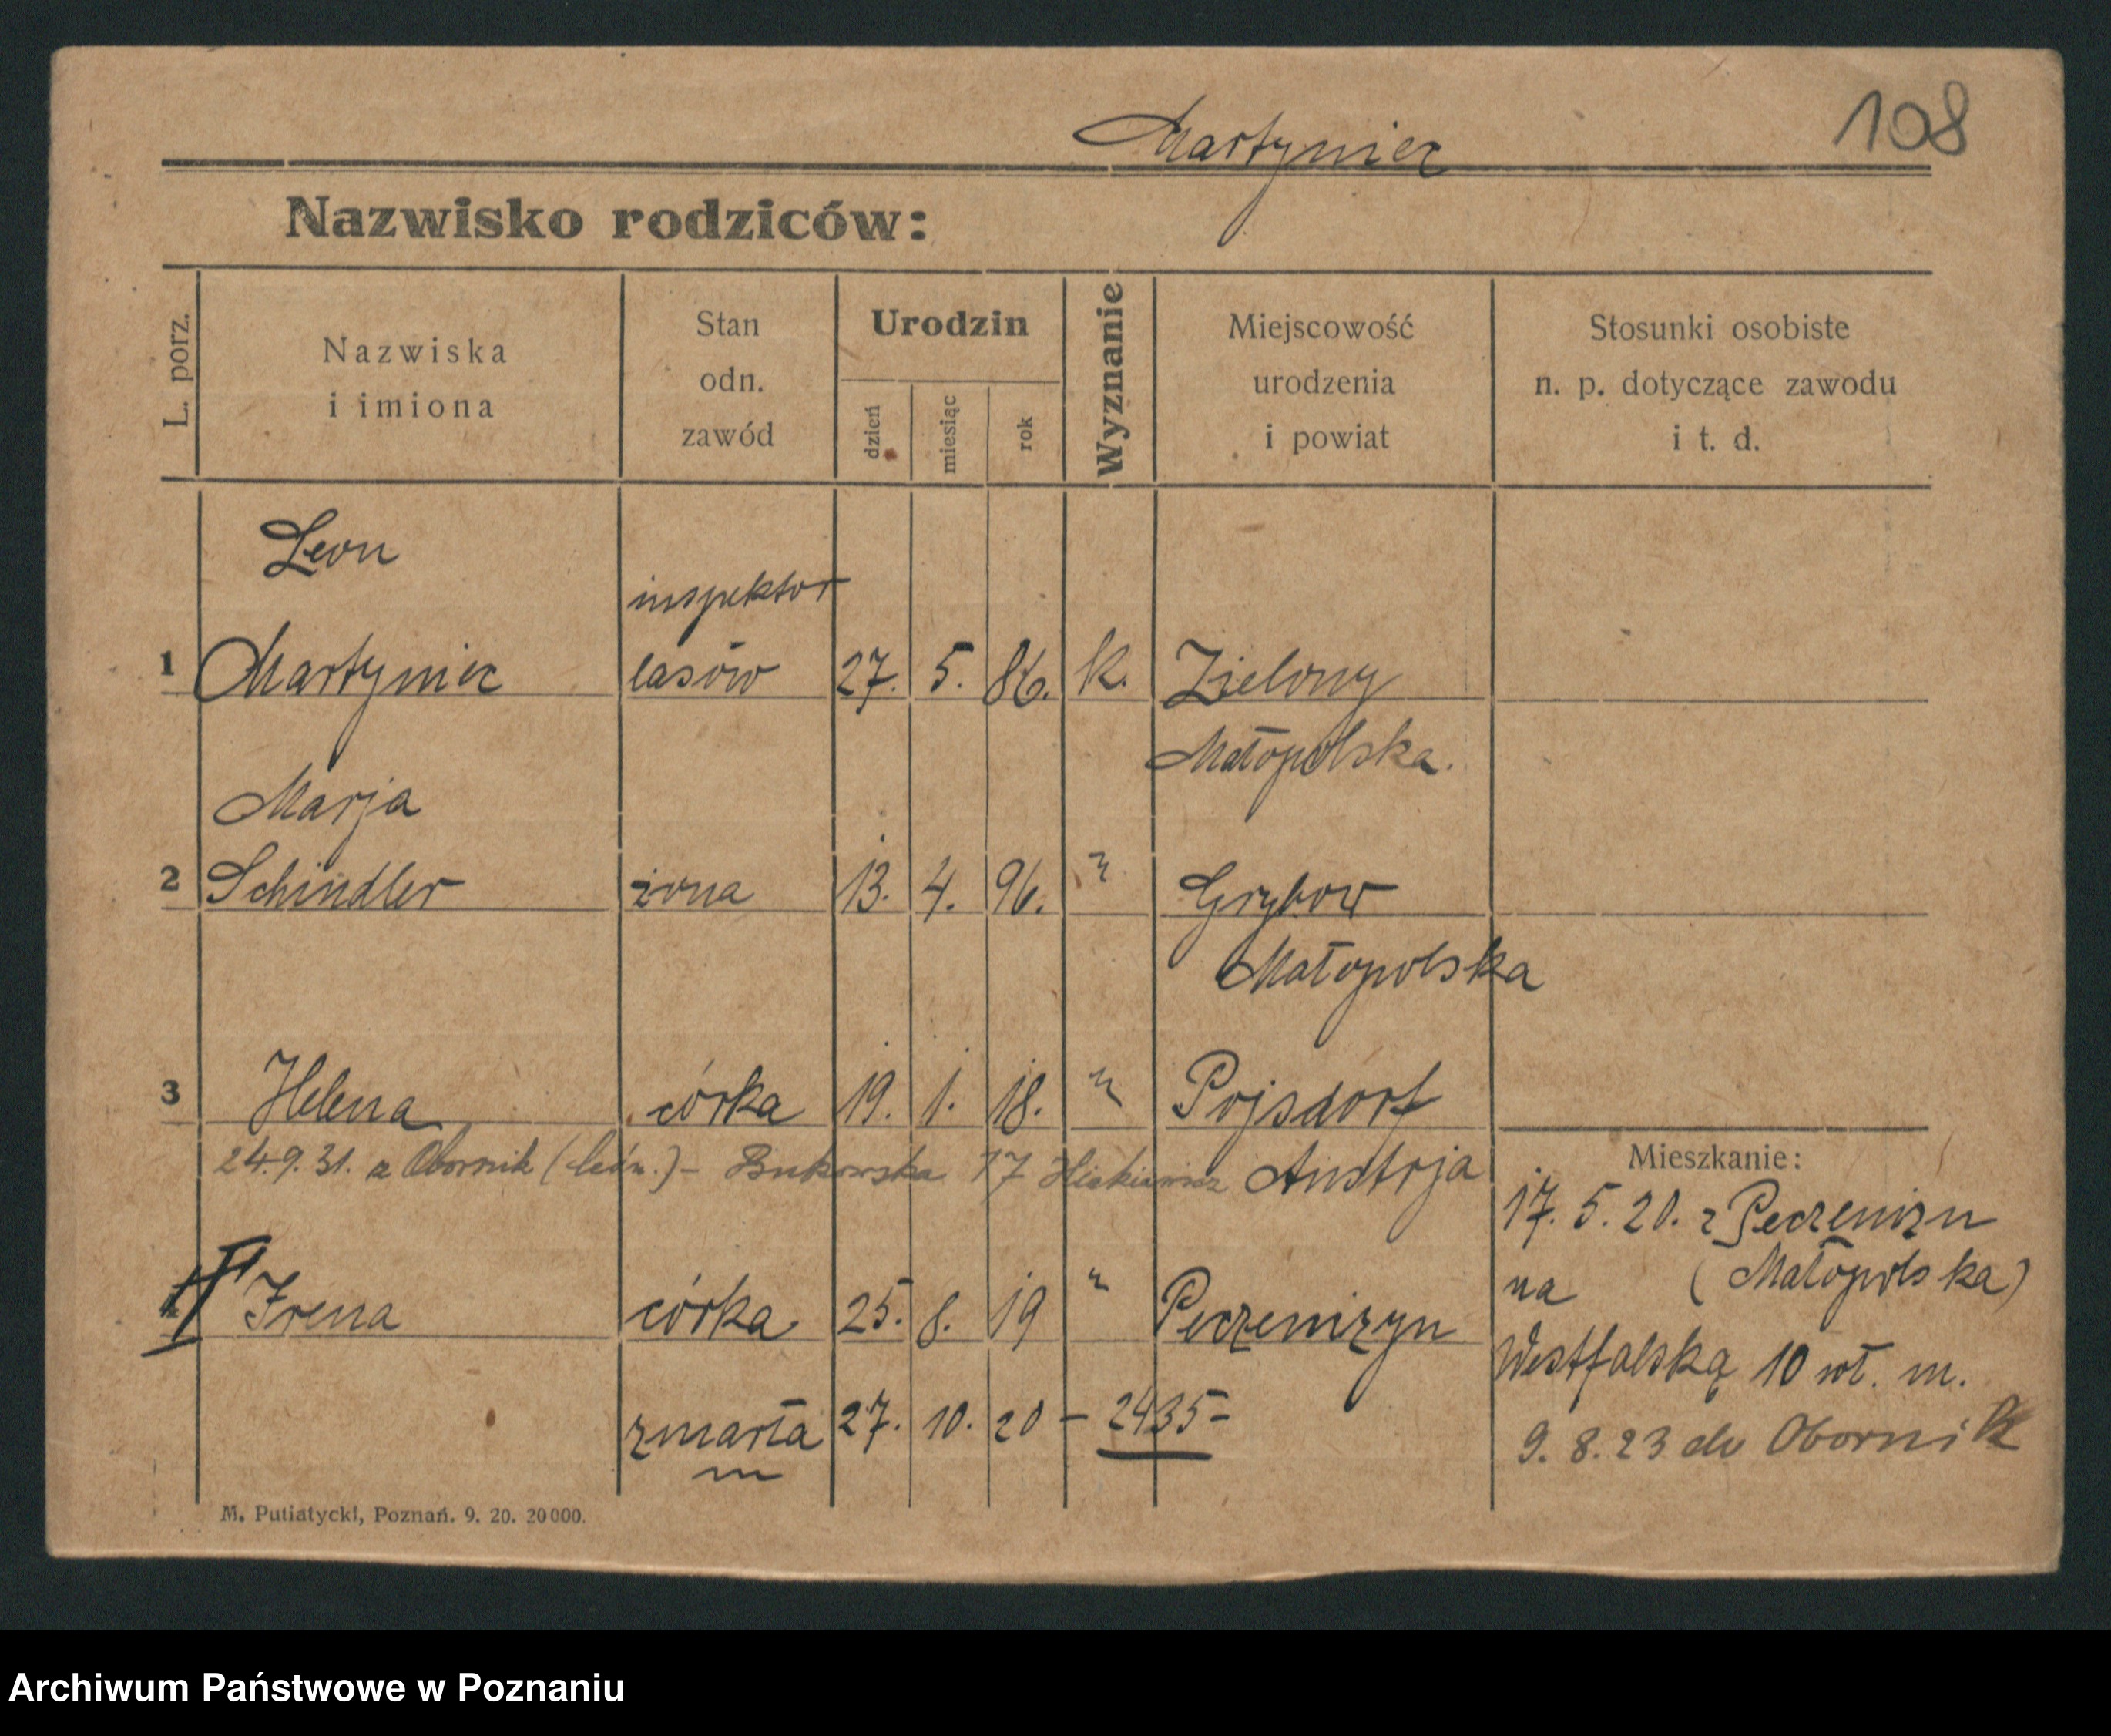 108
Martyniec
Nazwisko rodziców:
L. porz.
Nazwiska
i imiona
Stan
odn.
zawód
Urodzin
dzień
miesiąc
rok
Wyznanie
Miejscowość
urodzenia
i powiat
Stosunki osobiste
n. p. dotyczące zawodu
i t. d.
Leon
inspektor
1 Martyniec lasów 27. 5. 86. k. Zielony
Małopolska.
Marja
2 Schindler żona 13. 4. 96. " Grybow
Małopolska
3 Helena córka 19. 1. 18. " Pojsdorf
24.9.31. z Obornik - Bukowska 17
Austrja
Mieszkanie:
17. 5. 20. z Peczeniżyn
na (Małopolska)
Westfalską 10 wł. m.
9. 8. 23 do Obornik
Irena córka 25. 8. 19 " Peczeniżyn
zmarła 27. 10. 20 - 2435 -
M. Putiatycki, Poznań. 9. 20. 20000.
Archiwum Państwowe w Poznaniu